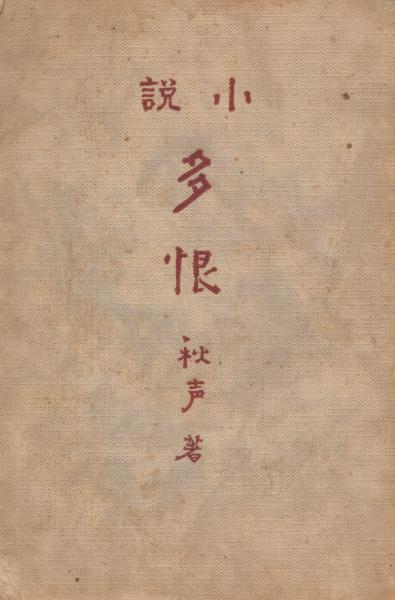 小説
多恨
秋声著